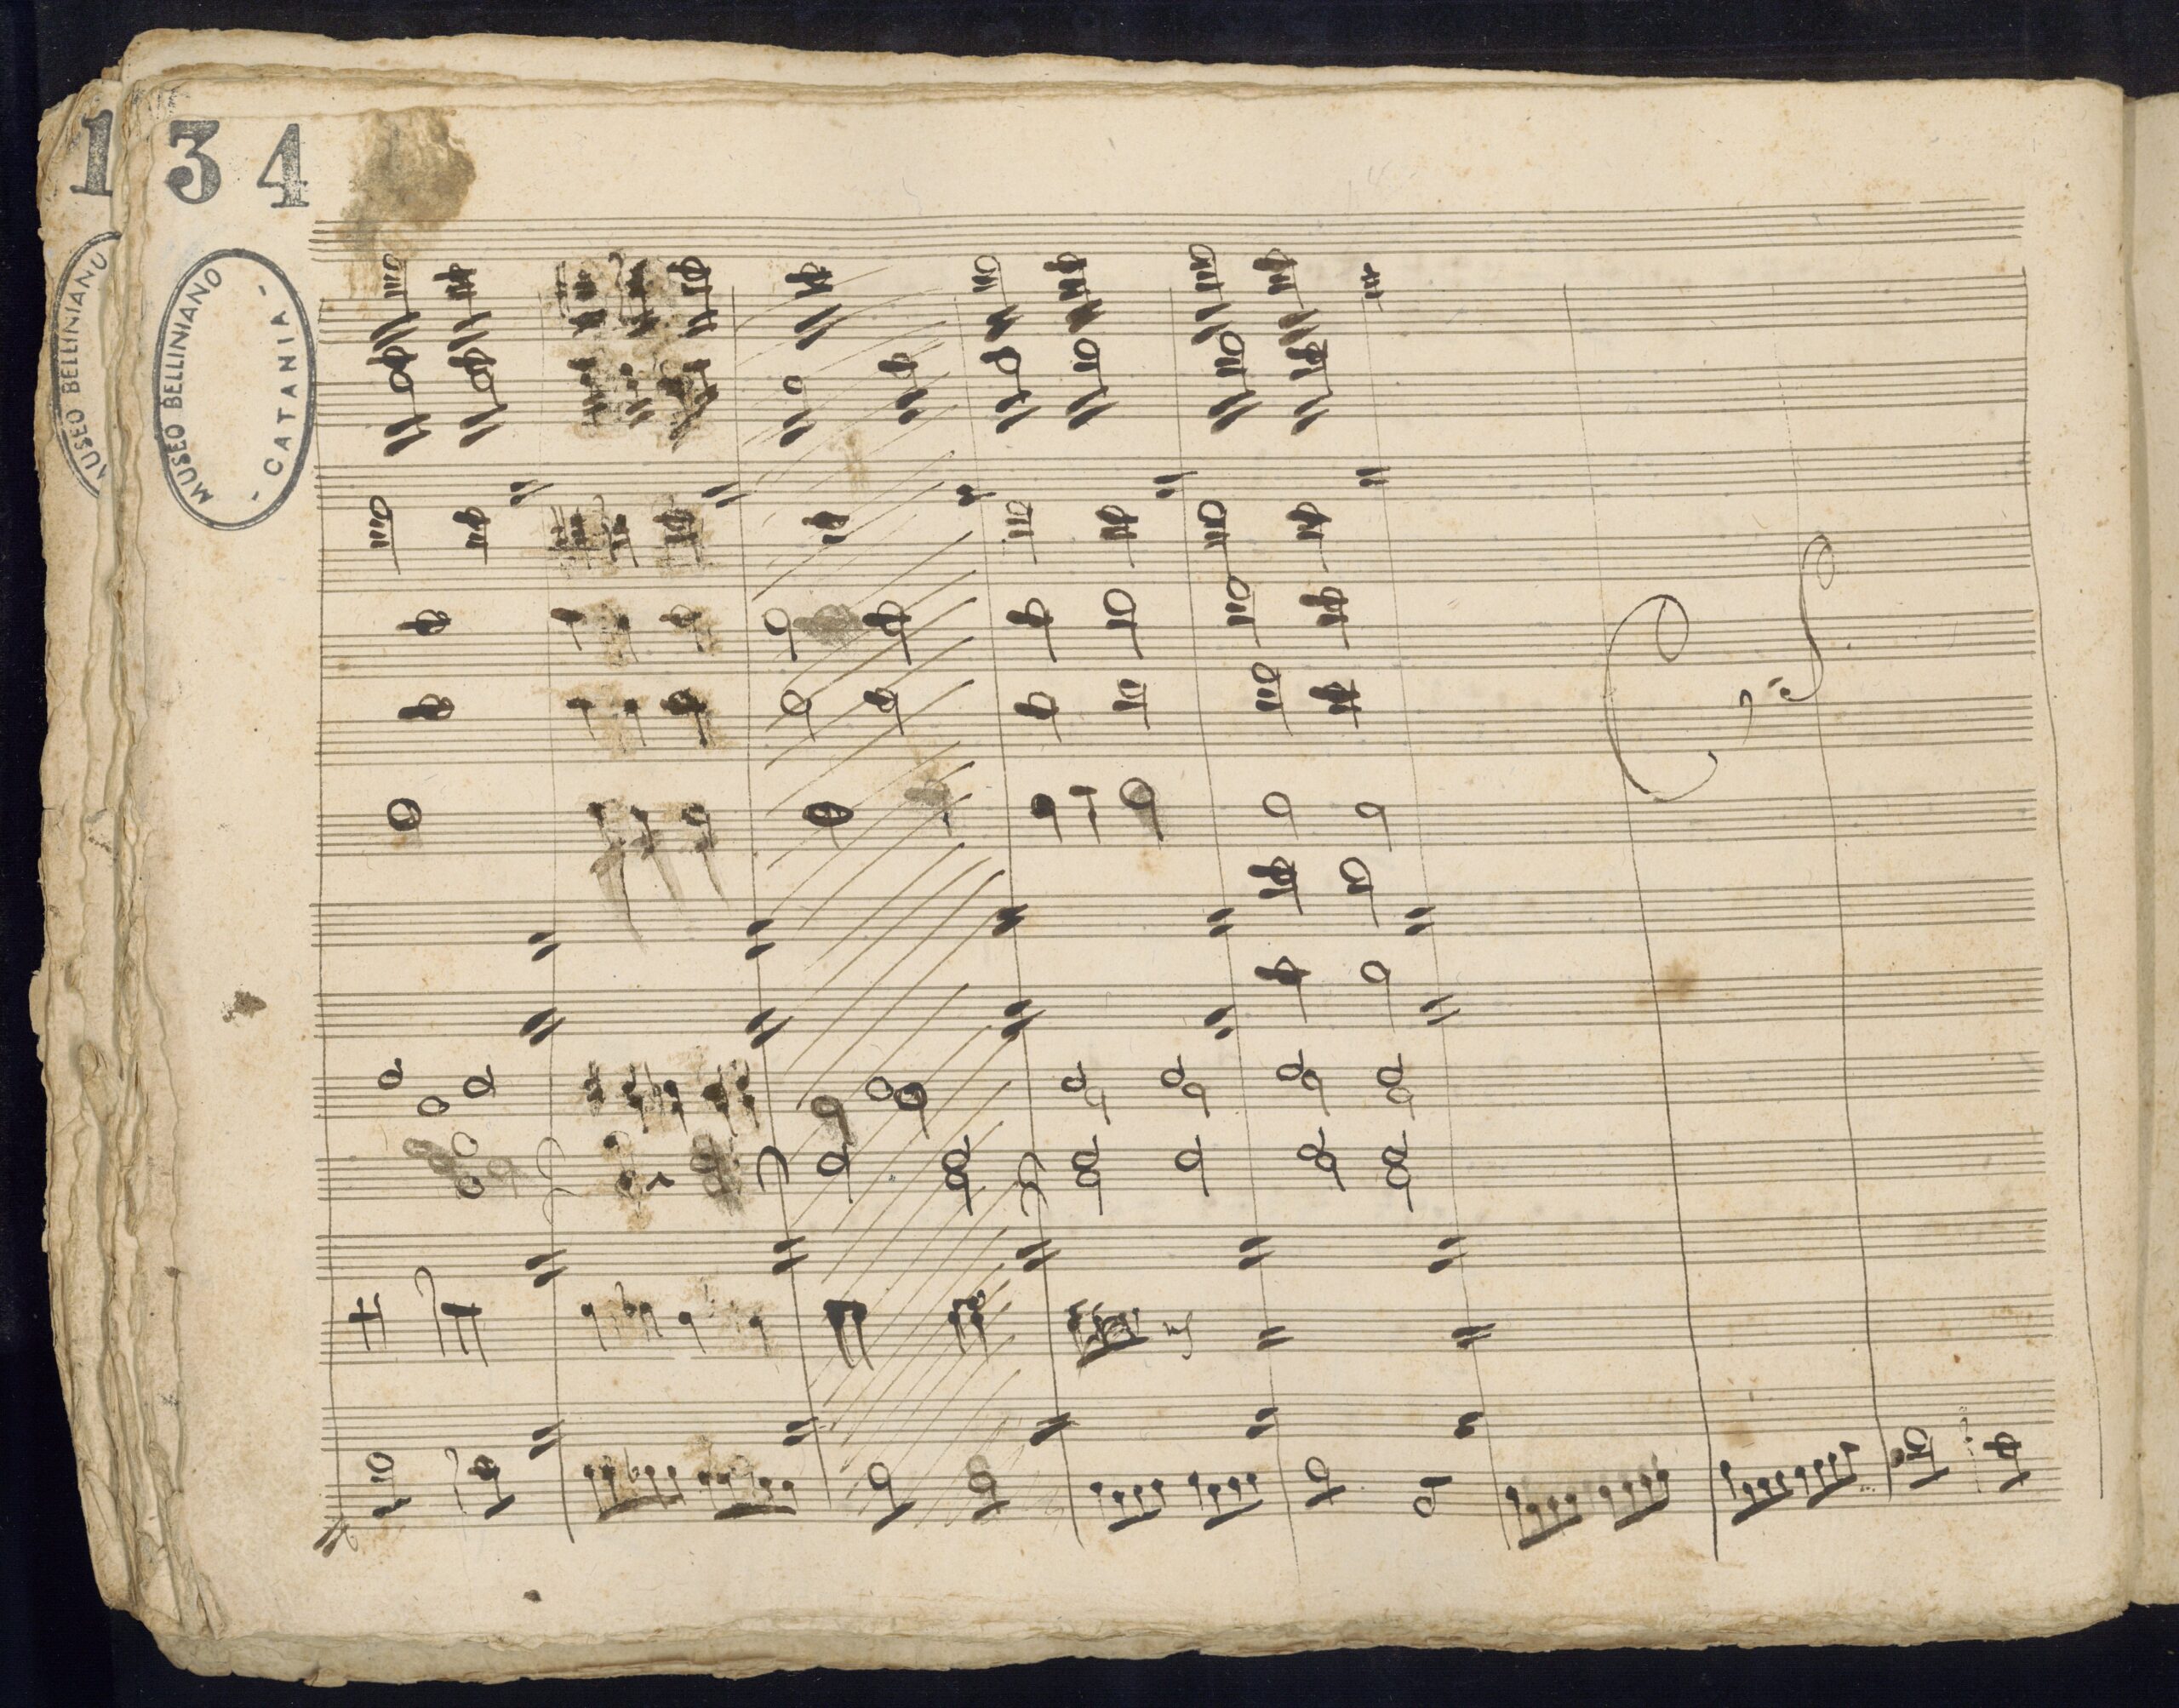 1
34
MUSEO BELLINIANO
MUSEO BELLINIANO
- CATANIA -